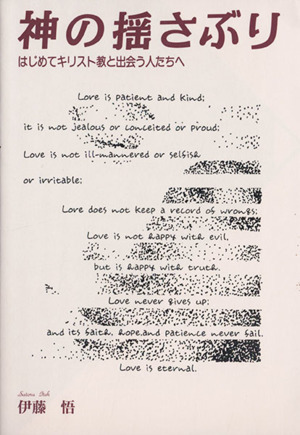 神の揺さぶり
はじめてキリスト教と出会う人たちへ
Love is patient and kind;
it is not jealous or conceited or proud;
Love is not ill-mannered or selfish
or irritable;
Love does not keep a record of wrongs;
Love is not happy with evil,
but is happy with truth.
Love never gives up;
and its faith, hope, and patience never fail.
Love is eternal.
伊藤 悟